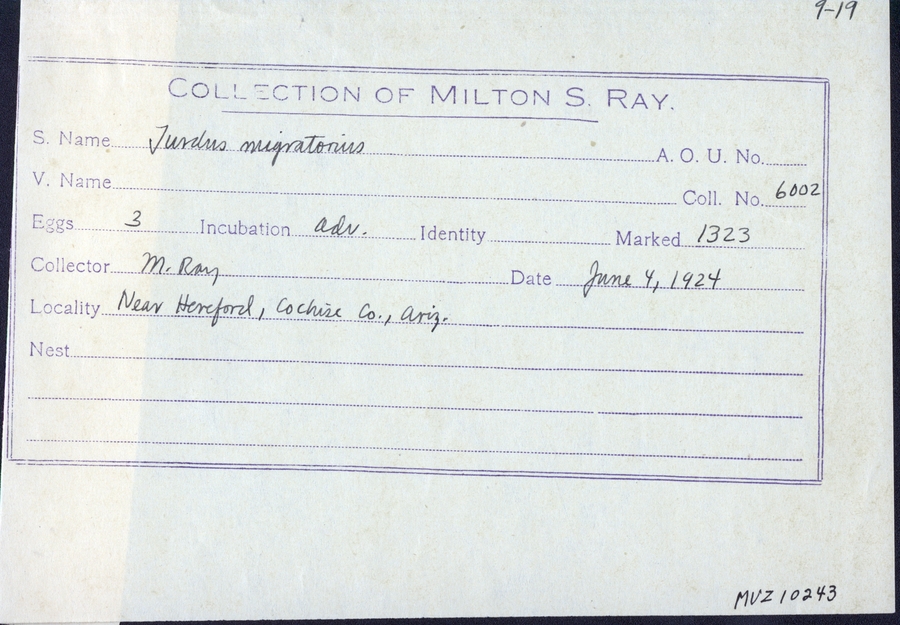 9-19
COLLECTION OF MILTON S. RAY.
S. Name Turdus migratorius A. O. U. No.
V. Name Coll. No. 6002
Eggs 3 Incubation adv. Identity Marked 1323
Collector M. Ray Date June 4, 1924
Locality Near Hereford, Cochise Co., Ariz.
Nest
MVZ 10243